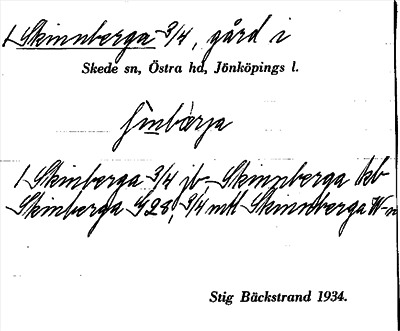 1 Skinnberga 3/4, gård i
Skede sn, Östra hd, Jönköpings l.
ʃinbärja
1 Skinberga 3/4 jb, Skinnberga kb
Skinberga G28, 3/4 mtl Skinnberga
Stig Bäckstrand 1934.